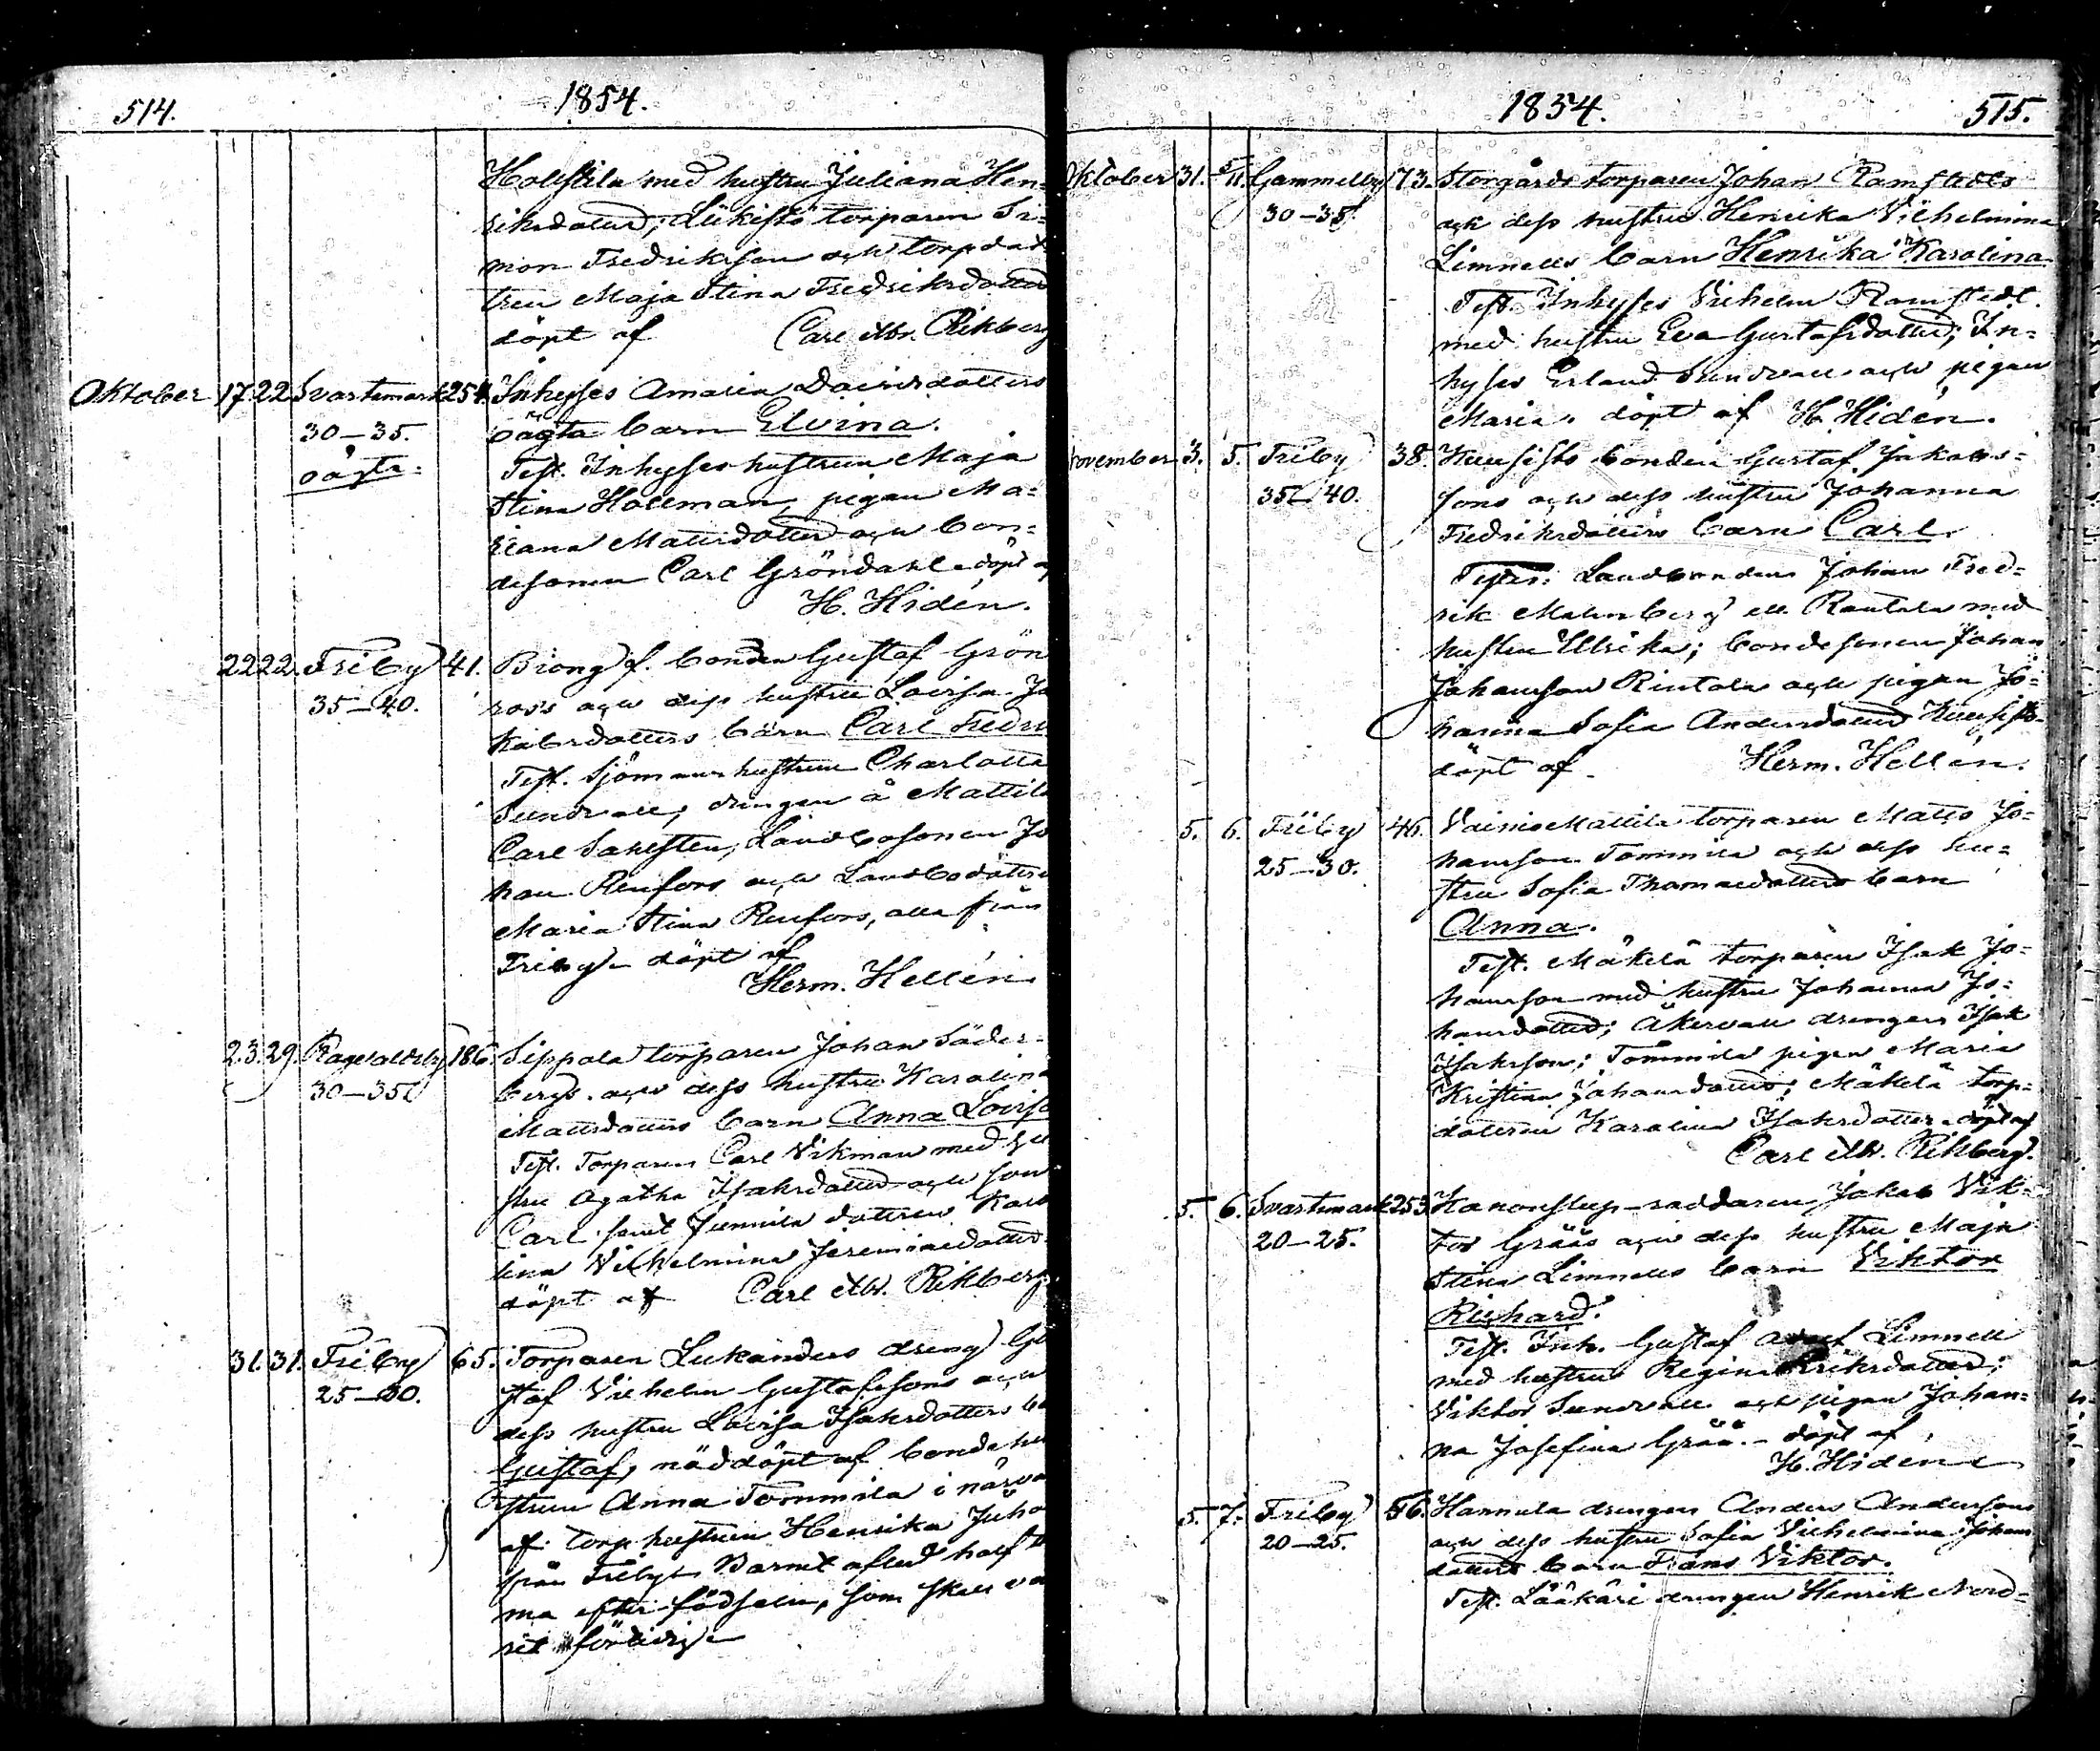 514.
1854.
Hollstila med hustru Juliana Hen=
riksdotter, Lükistö torparen Si=
mon Fredrikson och torpdot
tren Maja Stina Fredriksdotter
döpt af Carl Rikberg
Oktober 17. 22. Svartsmark 254. Inhyses Amalia Davidsdotters
30–35. oägta barn Elvina.
oägta. Test. Inhyseshustrun Maja
Stina Hollman, pigan Ma=
riana Mattsdotter och bon=
desonen Carl Gröndahl döpt af
H. Hidén.
22. 22. Friby 41. f. bonden Gustaf Grön
35–40. roos och dess hustru Lovisa Ja
kobsdotters barn Carl Fedri
Test. Sjömanshustrun Charlotta
Sundvall, drengen å Mattila
Carl Sahlsten, Landbosonen Jo
han Renfors och Landbodottren
Maria Stina Renfors, alla från
Friby döpt af
Herm. Hellén
23. 29. Ragvaldsby 186. Sippola torparen Johan Söder=
30–35. bergs och dess hustru Karolina
Mattsdotters barn Anna Lovisa
Test. Torparen Carl Vikman med hu
stru Agatha Isaksdotter och son
Carl samt Junnila dottren Karo
lina Vilhelmina Jeremiaedotter
döpt af Carl Rikberg
31. 31. Friby 65. Torparen Lukanders dreng Gu
25–30. staf Vilhelm Gustafssons och
dess hustru Lovisa Isaksdotters ba
Gustaf, nöddöpt af bondehu
strun Anna Tommila i närva
af torphustrun Henrika Juho
från Friby Barnet afled half
ma efter födseln, som skall va
rit förtidig
1854.
515.
Oktober 31. 5/11. Gammelby 173. Storgårds torparen Johan Ramstedts
30–35. och dess hustru Henrika Vilhelmina
Limnells barn Henrika Karolina
Test. Inhyses Vilhelm Ramstedt
med hustru Eva Gustafsdotter; In=
hyses Erland Sundvall och pigan
Maria. döpt af H. Hidén.
November 3. 5. Friby 38. Kuusisto bonden Gustaf Jakobs=
35–40. sons och dess hustru Johanna
Fredriksdotters barn Carl.
Testes: Landbonden Johan Fred=
rik Malmberg ell. Rantala med
hustru Ulrika; bondesonen Johan
Johansson Rintala och pigan Jo=
hanna Sofia Andersdotter Kuusisto
döpt af Herm. Hellén.
5. 6. Friby 46. Vainio Mattila torparen Matts Jo=
25–30. hansson Tommila och dess hu=
stru Sofia Thomasdotters barn
Anna.
Test. Mäkelä torparen Isak Jo=
hansson med hustru Johanna Jo=
hansdotter; Åkervall drengen Isak
Isaksson; Tommila pigan Maria
Kristina Johansdotter; Mäkelä torp=
dottren Karolina Isaksdotter döpt af
Carl Rikberg.
5. 6. Svartsmark 253. Kanonslup-roddaren Jakob Vik=
20–25. tor Gråås och dess hustru Maja
Stina Limnells barn Viktor
Richard.
Test. Inh. Gustaf Adolf Limnell
med hustru Regina Eriksdotter;
Viktor Sundvall och pigan Johan=
na Josefina Gråå. – döpt af
H. Hidén
5. 7. Friby 56. Hannula drengen Anders Anderssons
20–25. och dess hustru Sofia Vilhelmina Johans
dotters barn Frans Viktor.
Test. Lääkäri drengen Henrik Nord=